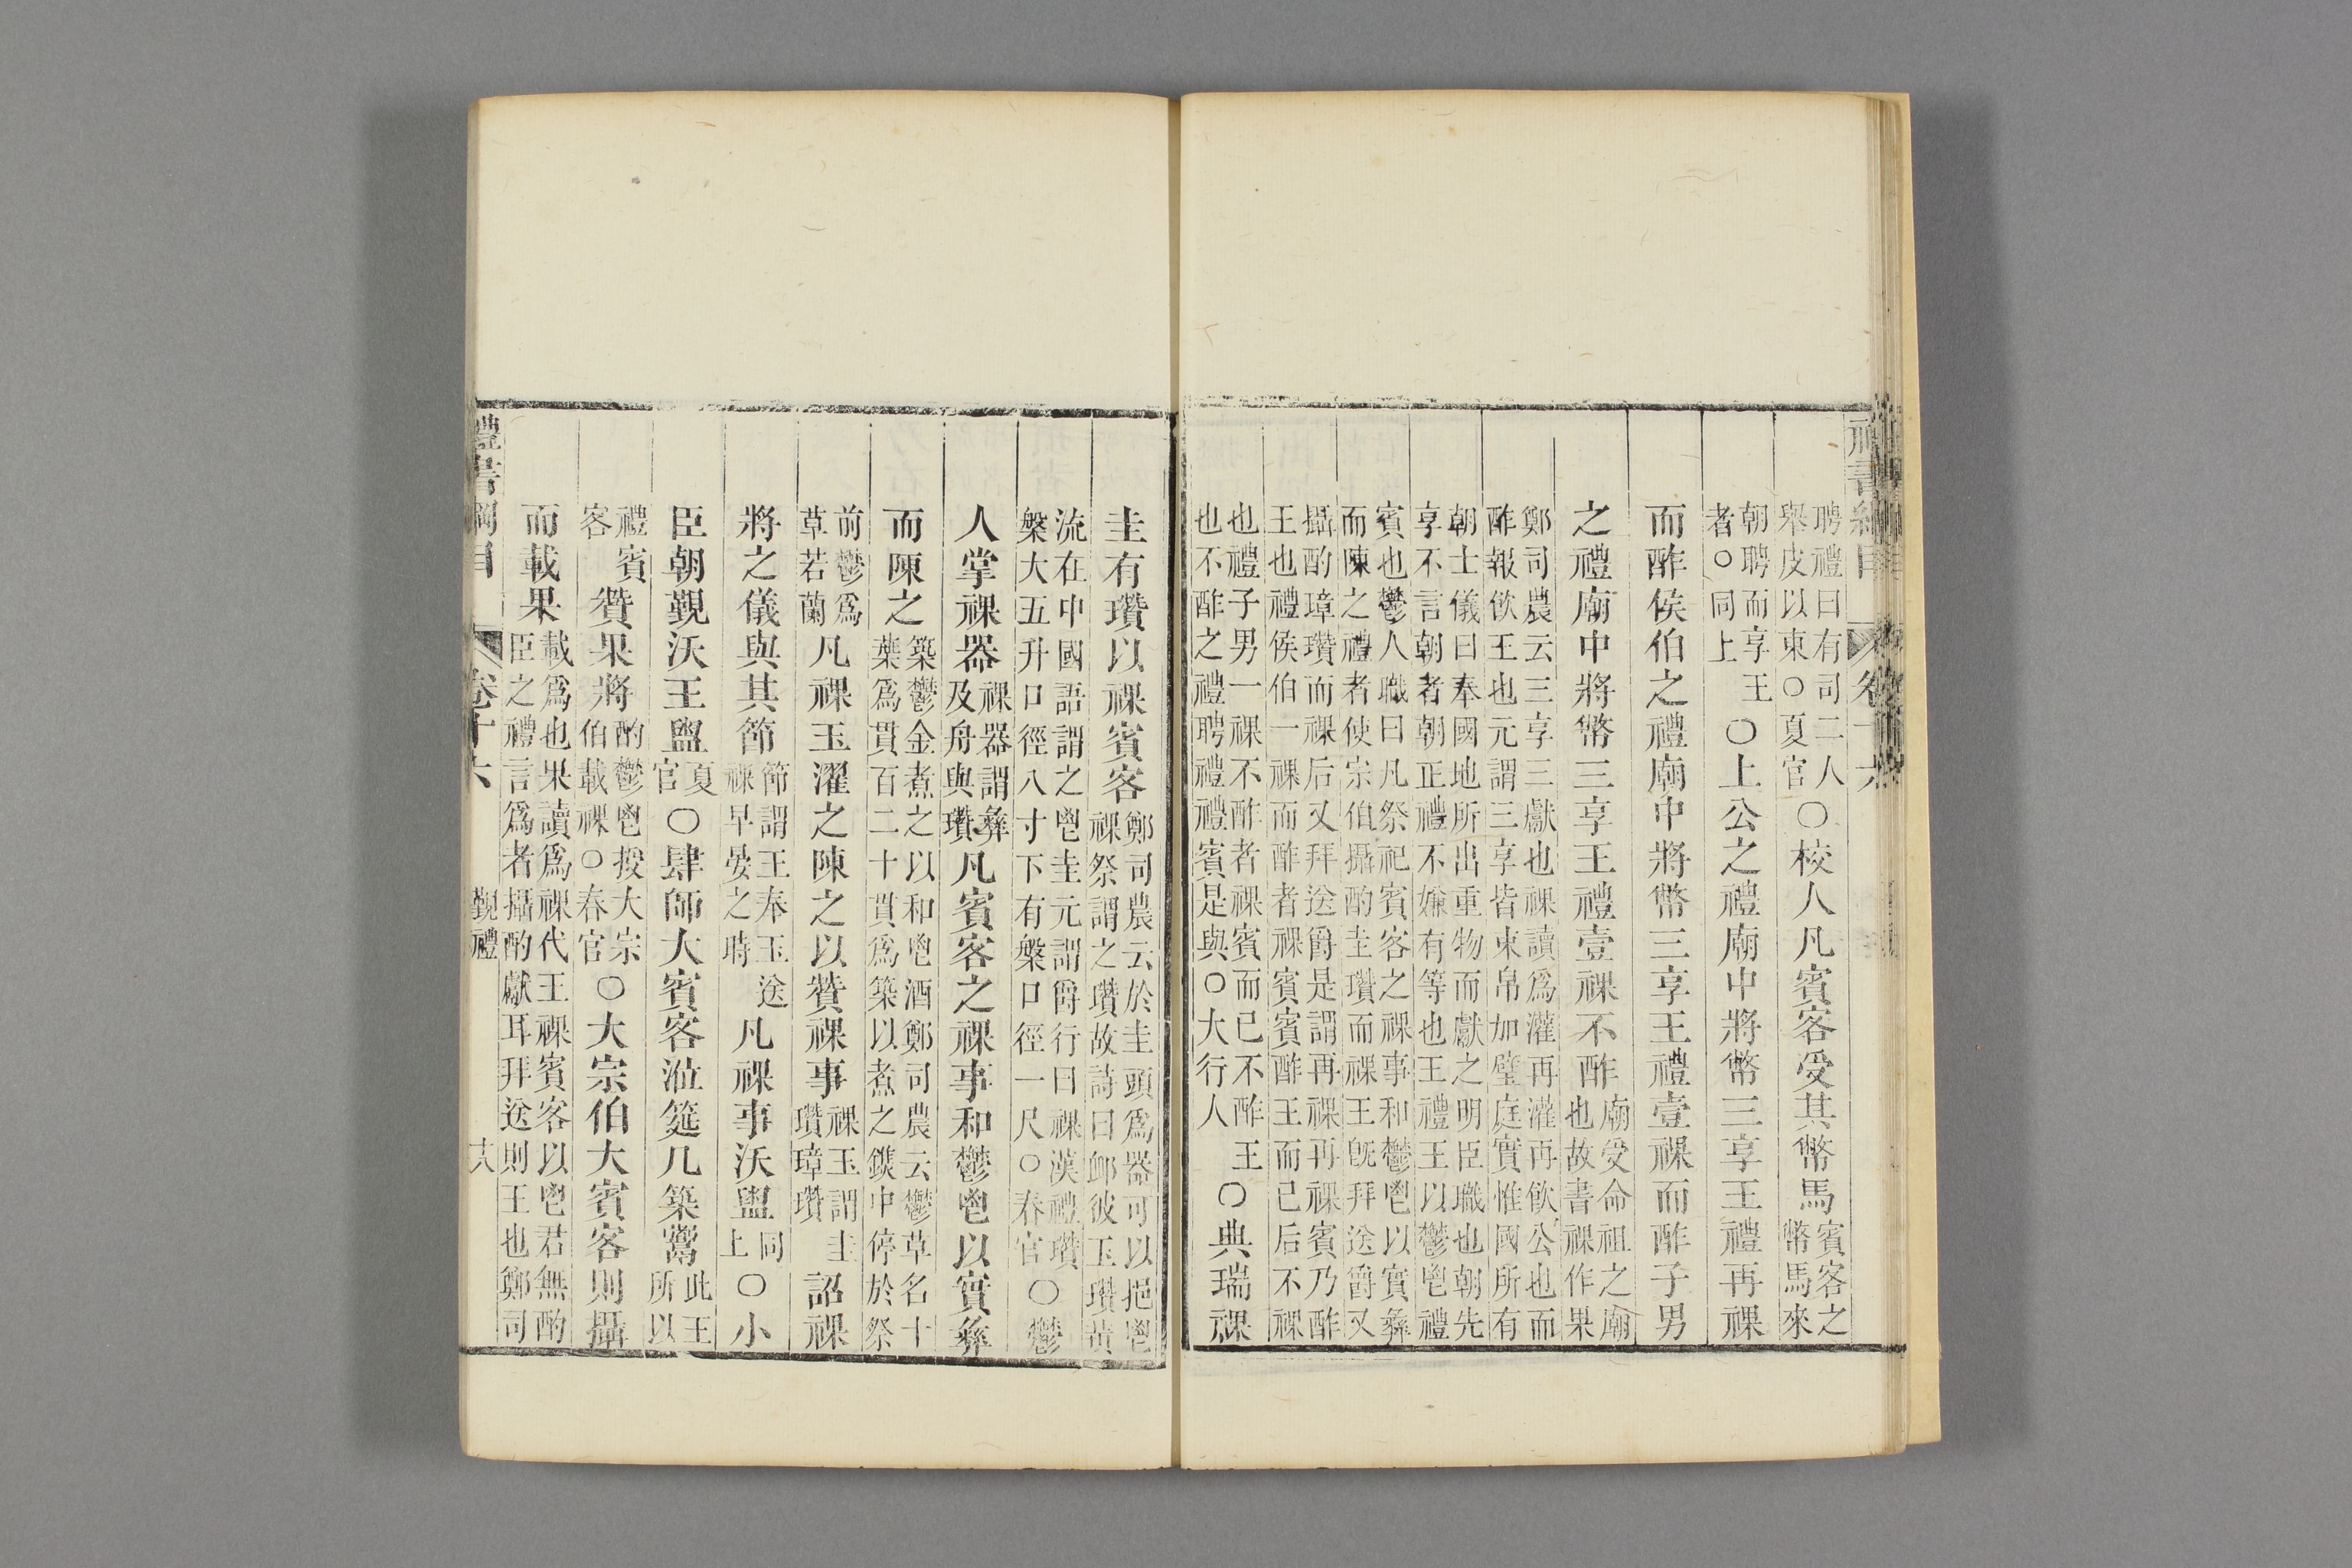 聘禮曰有司二人舉皮以東○夏官○校人凡賓客受其幣馬賓客之幣馬來
朝聘而享王者○同上○上公之禮廟中將幣三享王禮再祼
而酢侯伯之禮廟中將幣三享王禮壹祼而酢子男
之禮廟中將幣三享王禮壹祼不酢廟受命祖之廟也故書祼作果
鄭司農云三享三獻也祼讀爲灌再灌再飮公也而酢報飮王也元謂三享皆束帛加璧庭實惟國所有
朝士儀曰奉國地所出重物而獻之明臣職也朝先享不言朝者朝正禮不嫌有等也王禮王以鬱鬯禮
賓也鬱人職曰凡祭祀賓客之祼事和鬱鬯以實彝而陳之禮者使宗伯攝酌圭瓚而祼王旣拜送爵又
攝酌璋瓚而祼后又拜送爵是謂再祼再祼賓乃酢王也禮侯伯一祼而酢者祼賓賓酢王而已后不祼
也禮子男一祼不酢者祼賓而已不酢王也不酢之禮聘禮禮賓是與○大行人○典瑞祼
圭有瓚以祼賓客鄭司農云於圭頭爲器可以挹鬯祼祭謂之瓚故詩曰卹彼玉瓚黃
流在中國語謂之鬯圭元謂爵行曰祼漢禮瓚槃大五升口徑八寸下有槃口徑一尺○春官○鬱
人掌祼器祼器謂彝及舟與瓚凡賓客之祼事和鬱鬯以實彝
而陳之築鬱金煮之以和鬯酒鄭司農云鬱草名十葉爲貫百二十貫爲築以煮之鐎中停於祭
前鬱爲草若蘭凡祼玉濯之陳之以贊祼事祼玉謂圭瓚璋瓚詔祼
將之儀與其節節謂王奉玉送祼早晏之時凡祼事沃盥同上○小
臣朝覲沃王盥夏官○肆師大賓客涖筵几築鬻此王所以
禮賓客贊果將酌鬱鬯授大宗伯載祼○春官○大宗伯大賓客則攝
而載果載爲也果讀爲祼代王祼賓客以鬯君無酌臣之禮言爲者攝酌獻耳拜送則王也鄭司
禮書綱目 卷十六 覲禮 十八